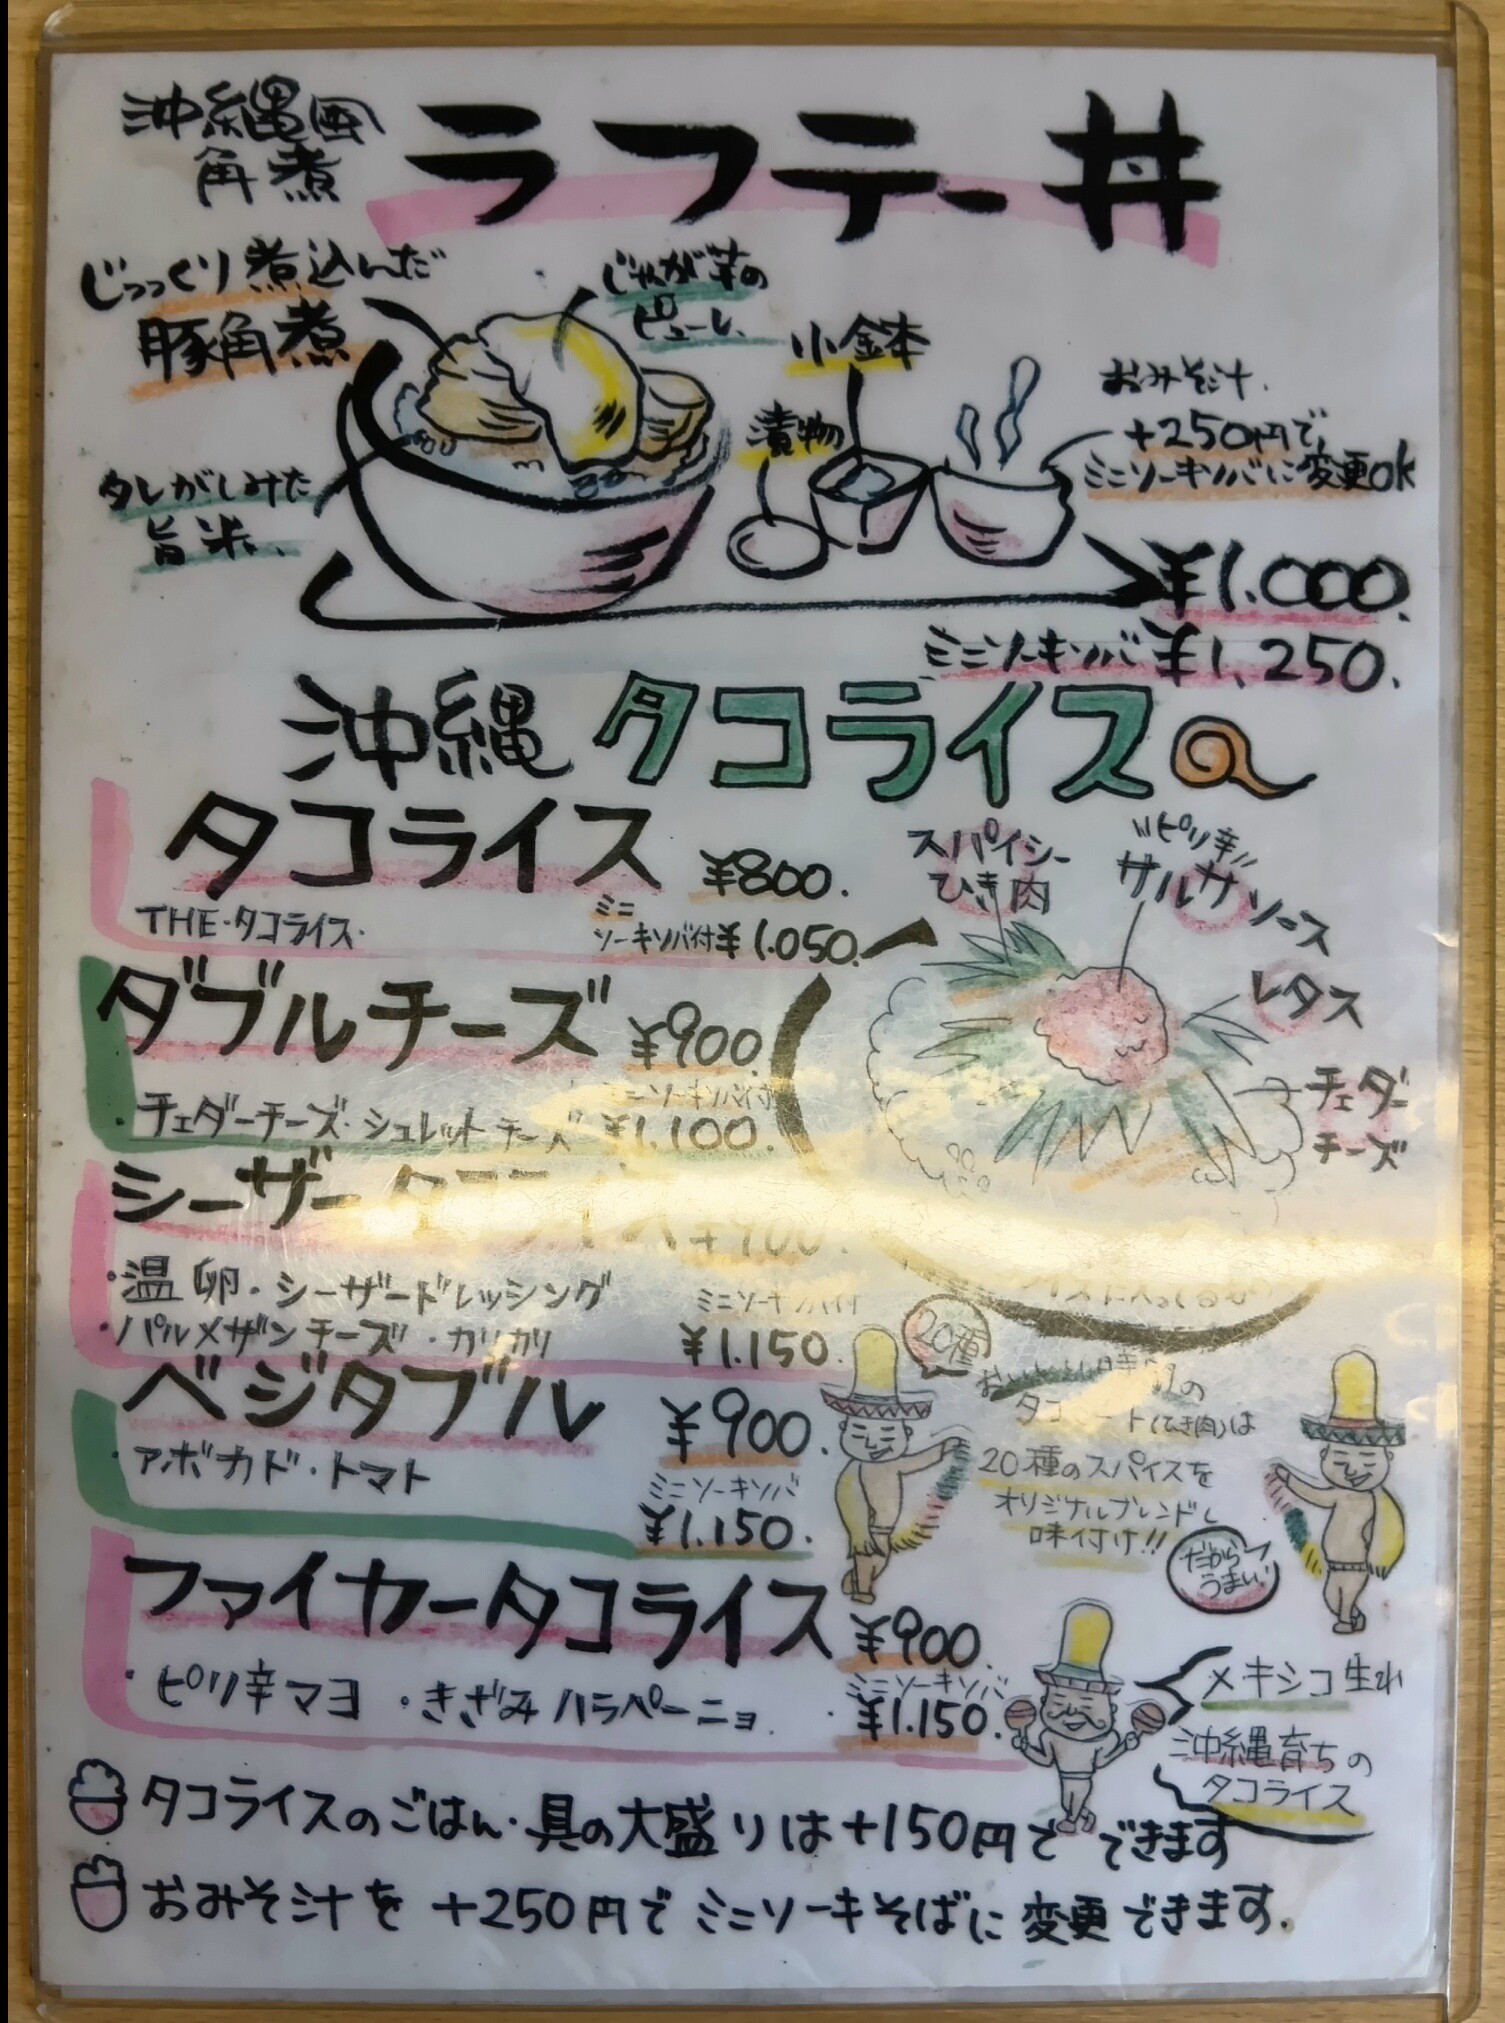 沖縄風
角煮
ラフテー丼
じっっくり煮込んだ
豚角煮
じゃが芋の
ピューレ、
小鉢
漬物
おみそ汁
+250円で、
ミニソーキソバに変更OK
タレがしみた
旨米、
¥1.000.
ミニソーキソバ ¥1,250.
沖縄 タコライス
タコライス ¥800.
THE・タコライス.
ミニ
ソーキソバ付 ¥1.050.
スパイシー
ひき肉
"ピリ辛"
サルサソース
レタス
チェダー
チーズ
ダブルチーズ ¥900.
・チェダーチーズ・シュレットチーズ
ミニソーキソバ付
¥1.100.
シーザータコライス ¥900.
・温卵・シーザードレッシング
・パルメザンチーズ・カリカリ
ミニソーキソバ付
¥1.150.
ベジタブル ¥900.
・アボカド・トマト
ミニソーキソバ
¥1.150.
20種
タコミート(ひき肉)は
20種のスパイスを
オリジナルブレンドし
味付け!!
だから
うまい!
ファイヤータコライス ¥900.
・ピリ辛マヨ ・きざみハラペーニョ
ミニソーキソバ
¥1.150.
メキシコ生れ
沖縄育ちの
タコライス
タコライスのごはん・具の大盛りは+150円で できます
おみそ汁を +250円で ミニソーキそばに 変更できます.